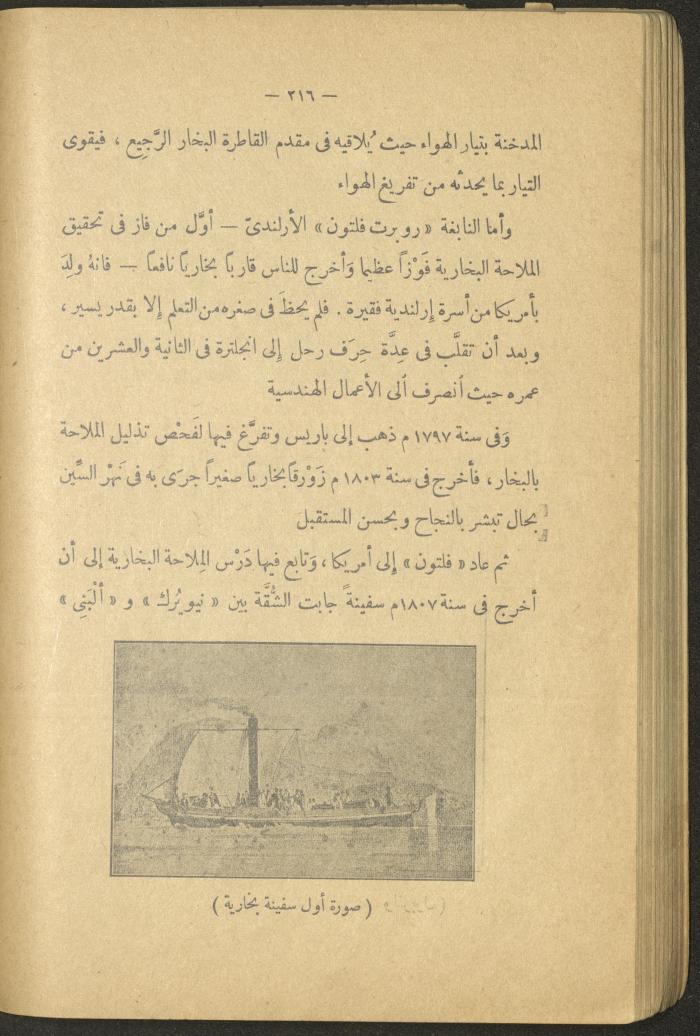 — ٢١٦ —
المدخنة بتيار الهواء حيث يُلاقيه فى مقدم القاطرة البخار الرَّجِيع ، فيقوى
التيار بما يحدثه من تفريغ الهواء
وأما النابغة « روبرت فلتون » الأرلندىّ — أوَّل من فاز فى تحقيق
الملاحة البخارية فَوْزاً عظيما وَأخرج للناس قارباً بخارياً نافعاً — فانهُ ولِدَ
بأمريكا من أسرة إرلندية فقيرة . فلم يحظَ فى صغره من التعلم إلا بقدر يسير ،
وبعد أن تقلَّب فى عِدَّة حِرَف رحل إلى انجلترة فى الثانية والعشرين من
عمره حيث أنصرف ألى الأعمال الهندسية
وَفى سنة ١٧٩٧ م ذهب إلى باريس وتفرَّغ فيها لفَحْص تذليل الملاحة
بالبخار ، فأخرج فى سنة ١٨٠٣ م زَوْرقاً بخارياً صغيراً جرَى به فى نَهْر السِّين
بحال تبشر بالنجاح وبحسن المستقبل
ثم عاد « فلتون » إلى أمريكا ، وَتابع فيها دَرْس المِلاحة البخارية إلى أن
أخرج فى سنة ١٨٠٧م سفينةً جابت الشُّقَّة بين « نيويُرك » و « ألْبَنِى »
( صورة أول سفينة بخارية )